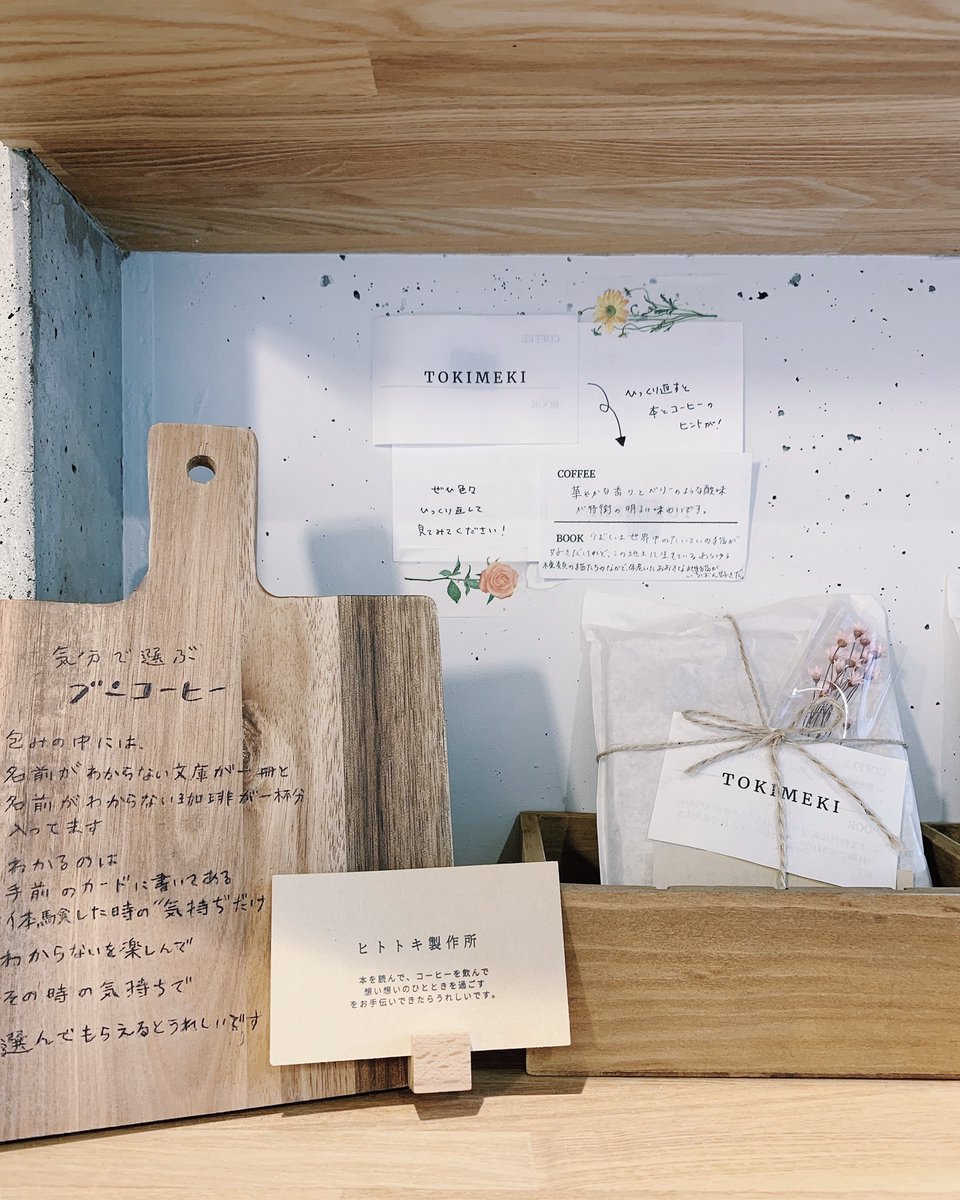 TOKIMEKI
ひっくり返すと
本とコーヒーの
ヒントが!
ぜひ色々
ひっくり返して
見てみてください!
COFFEE
華やかな香りとベリーのような酸味
が特徴の明るい味わいです。
BOOK ぼくは世界中のたいていの猫が
好きだけれど、この地上に生きているあらゆる
種類の猫たちのなかで、年老いたおおきな雌猫が
いちばん好きだ
気分で選ぶ
ブンコーヒー
包みの中には、
名前がわからない文庫が一冊と
名前がわからない珈琲が一杯分
入ってます
わかるのは
手前のカードに書いてある
体験した時の"気持ち"だけ
わからないを楽しんで
その時の気持ちで
選んでもらえるとうれしいです
TOKIMEKI
ヒトトキ製作所
本を読んで、コーヒーを飲んで
想い想いのひとときを過ごす
をお手伝いできたらうれしいです。